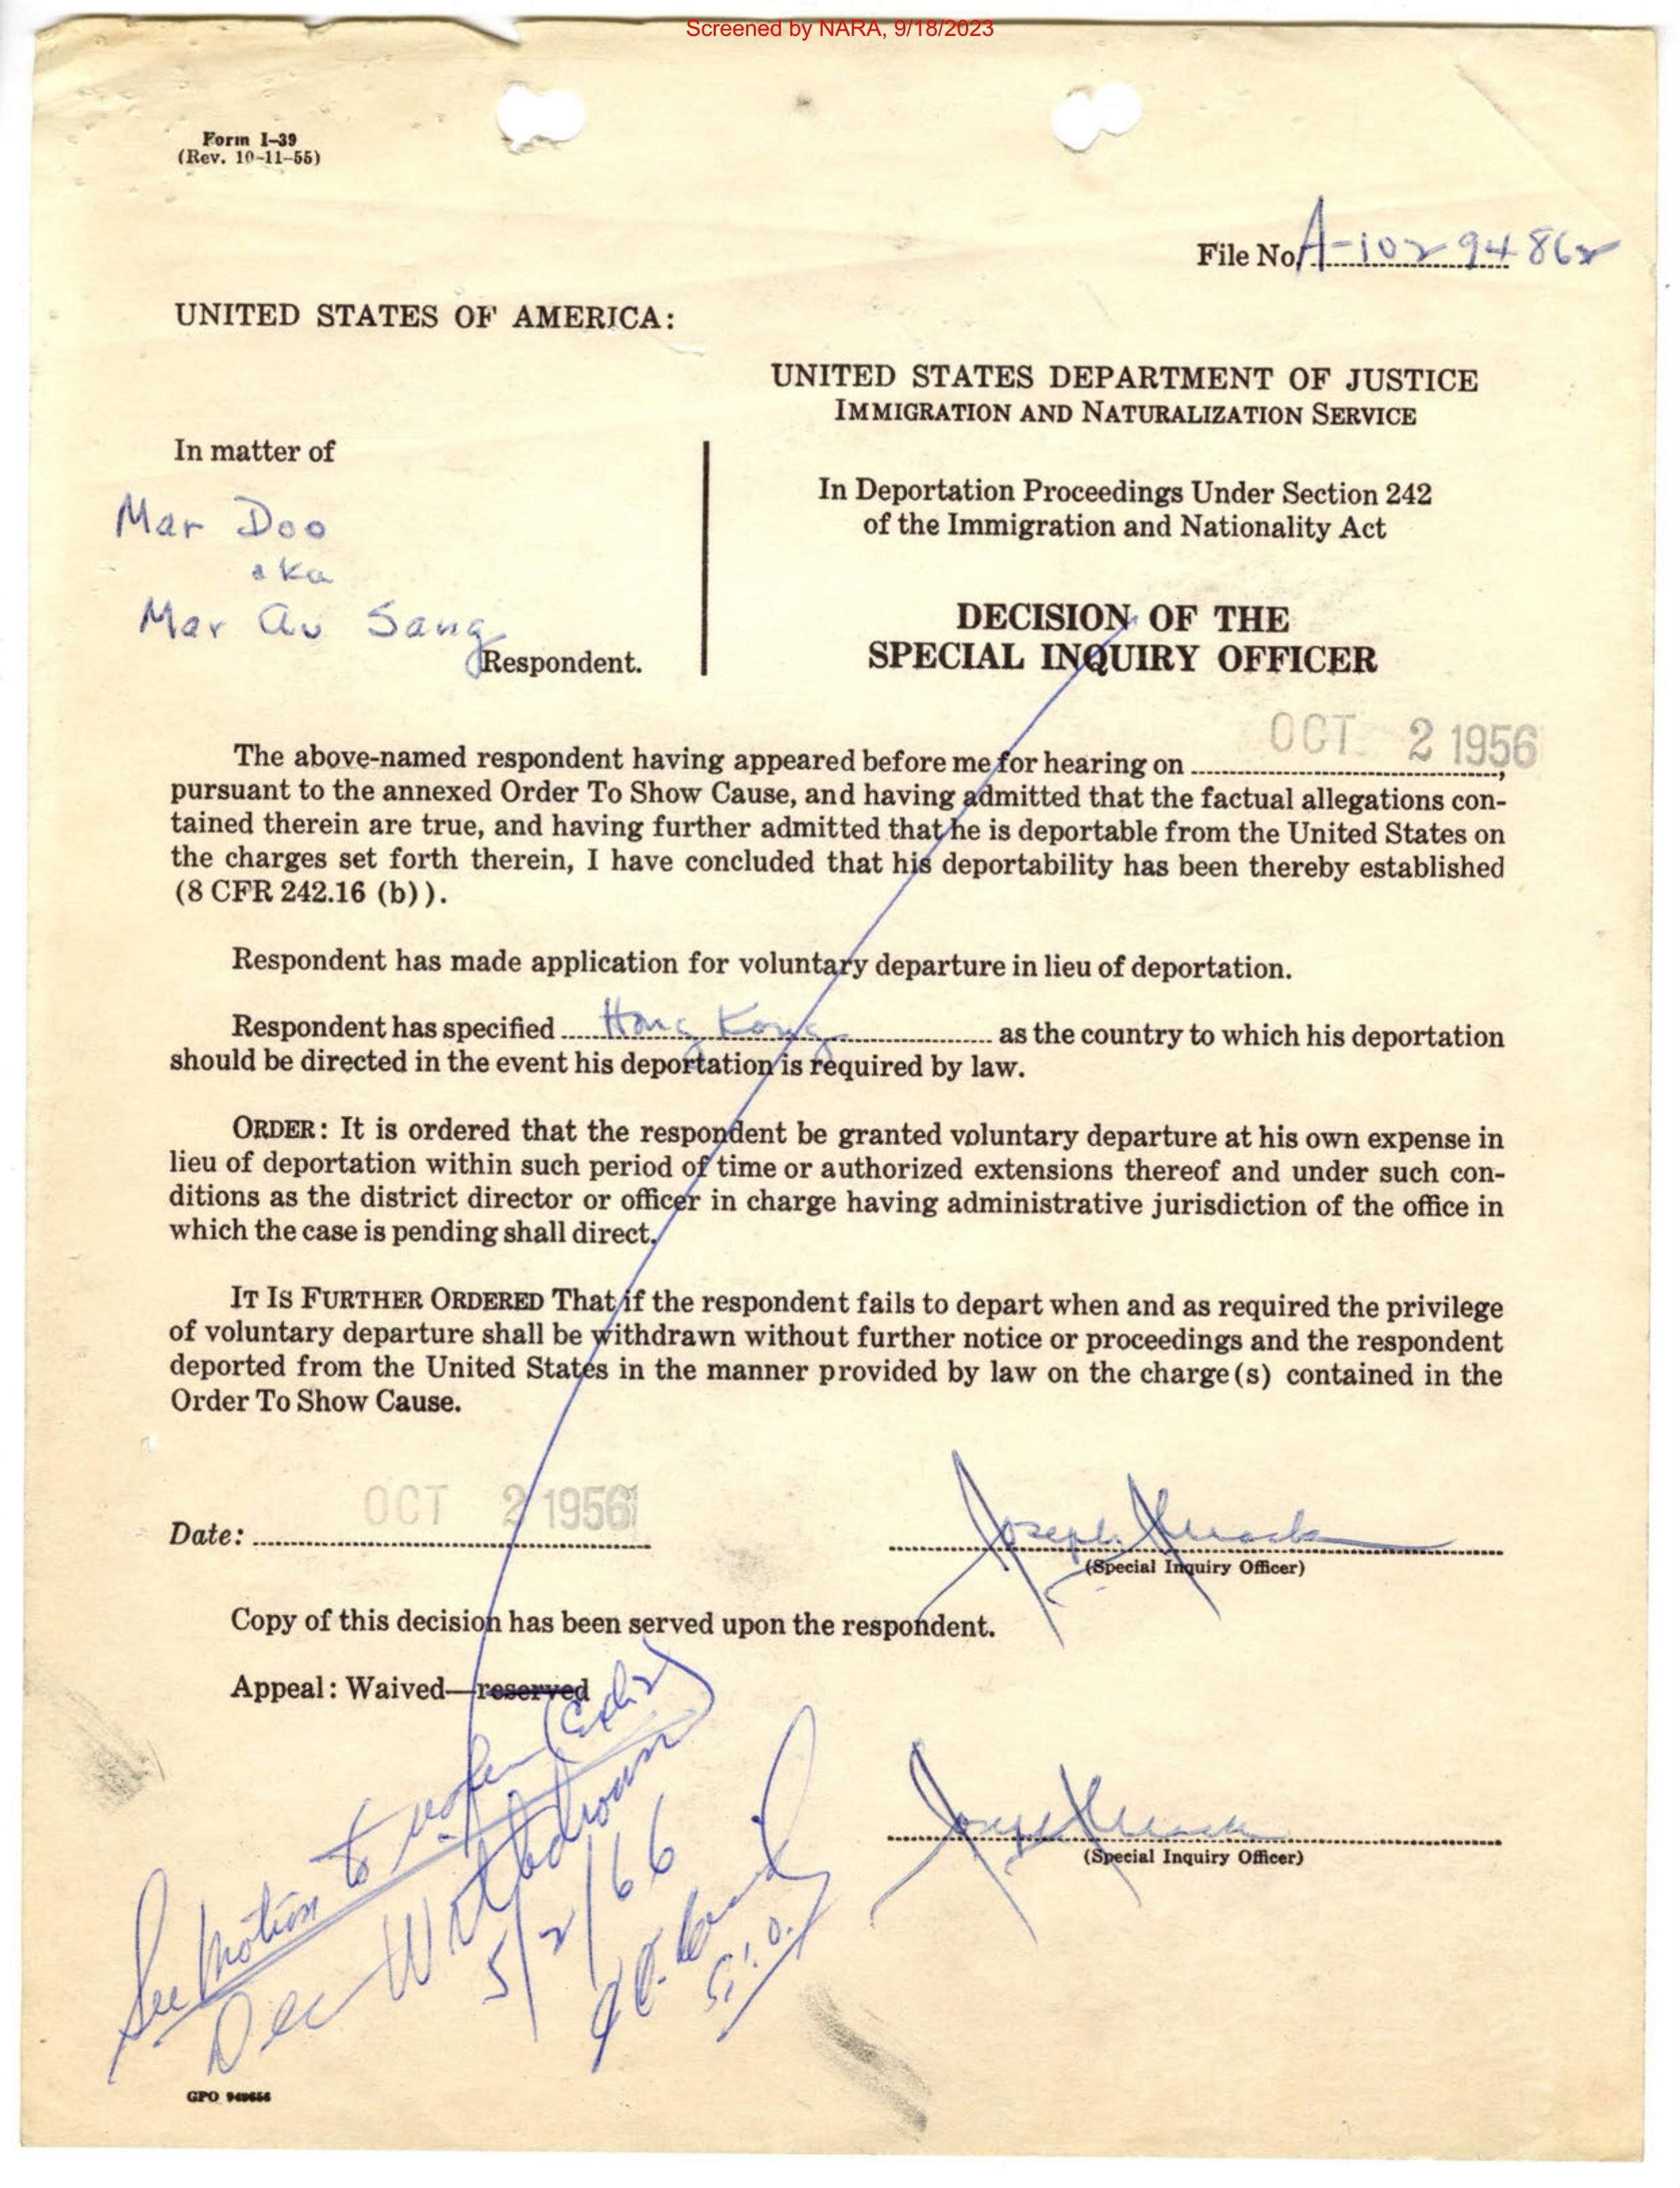 Screened by NARA, 9/18/2023
Form I–39
(Rev. 10–11–55)
File No. A-102 94 862
UNITED STATES OF AMERICA:
UNITED STATES DEPARTMENT OF JUSTICE
IMMIGRATION AND NATURALIZATION SERVICE
In matter of
Mar Doo
aka
Mar Au Sang
Respondent.
In Deportation Proceedings Under Section 242
of the Immigration and Nationality Act
DECISION OF THE
SPECIAL INQUIRY OFFICER
The above-named respondent having appeared before me for hearing on OCT 2 1956,
pursuant to the annexed Order To Show Cause, and having admitted that the factual allegations con-
tained therein are true, and having further admitted that he is deportable from the United States on
the charges set forth therein, I have concluded that his deportability has been thereby established
(8 CFR 242.16 (b)).
Respondent has made application for voluntary departure in lieu of deportation.
Respondent has specified Hong Kong as the country to which his deportation
should be directed in the event his deportation is required by law.
ORDER: It is ordered that the respondent be granted voluntary departure at his own expense in
lieu of deportation within such period of time or authorized extensions thereof and under such con-
ditions as the district director or officer in charge having administrative jurisdiction of the office in
which the case is pending shall direct.
IT IS FURTHER ORDERED That if the respondent fails to depart when and as required the privilege
of voluntary departure shall be withdrawn without further notice or proceedings and the respondent
deported from the United States in the manner provided by law on the charge(s) contained in the
Order To Show Cause.
Date: OCT 2 1956
Joseph Mack
(Special Inquiry Officer)
Copy of this decision has been served upon the respondent.
Appeal: Waived—reserved
Joseph Mack
(Special Inquiry Officer)
See Motion to reopen
Dec Withdrawn
5/2/66
S.I.O.
GPO